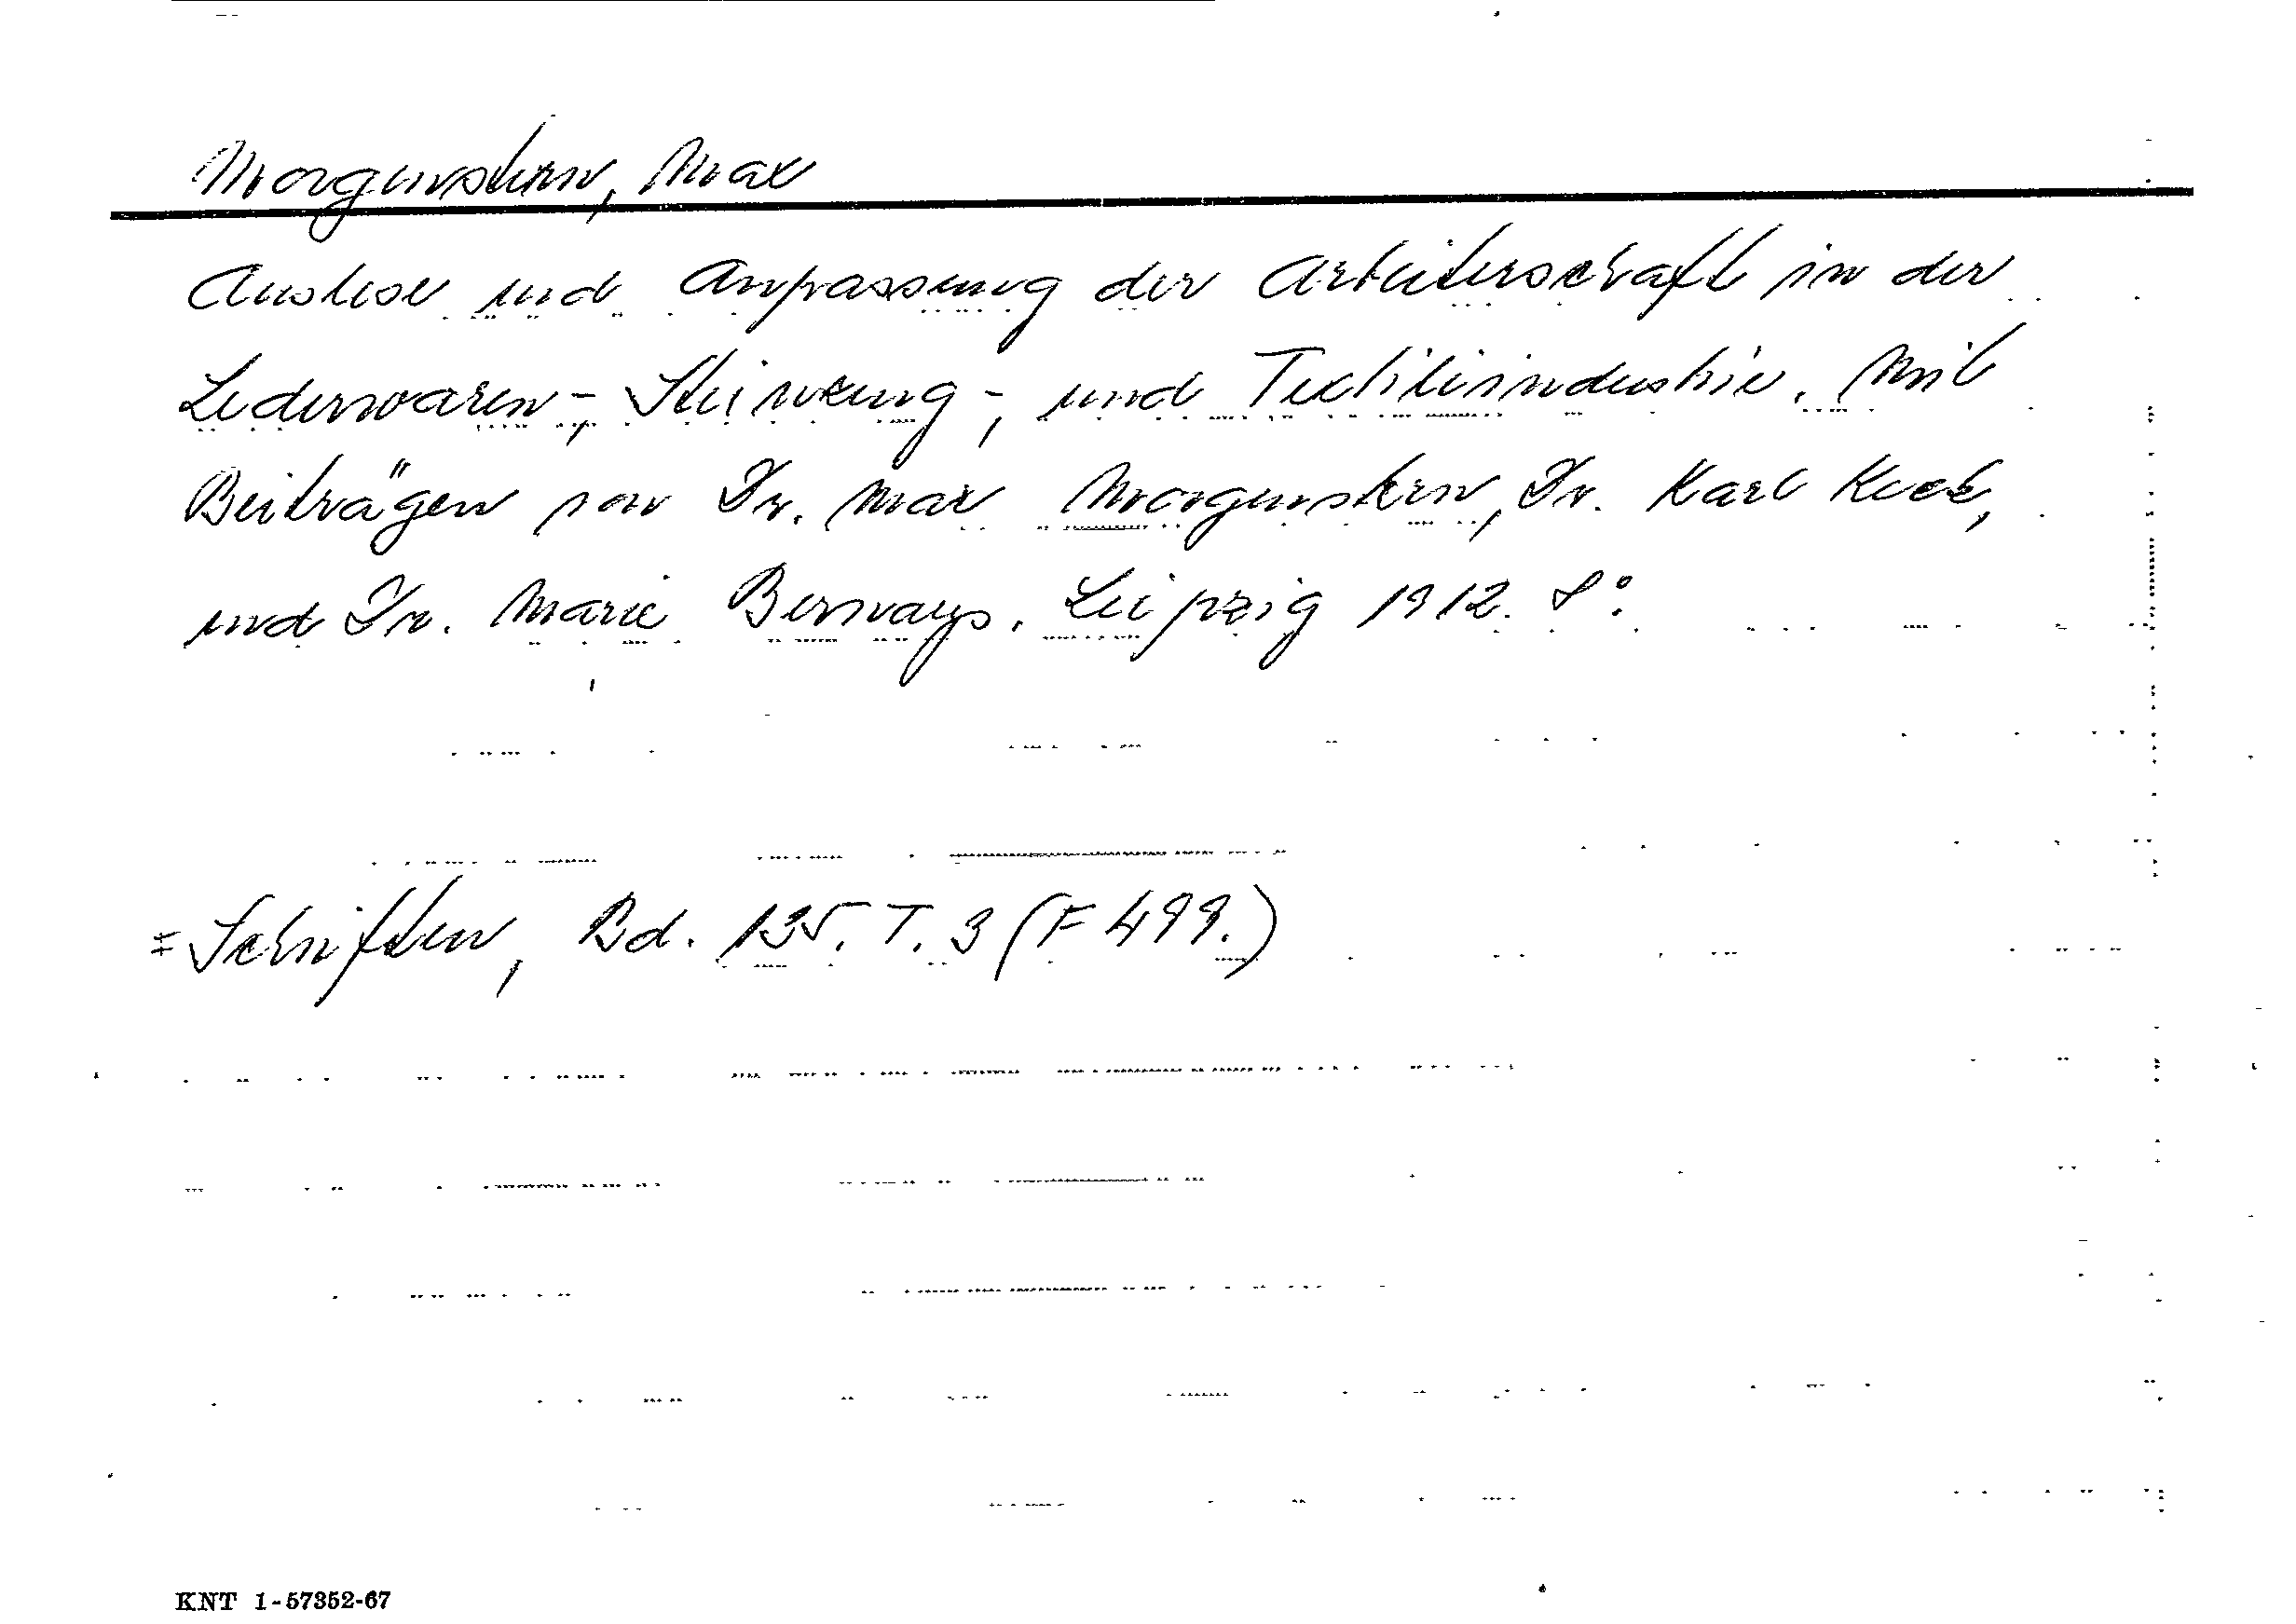 Morgenstern, Max
Auslese und Anpassung der Arbeiterschaft in der
Lederwaren-, Steinzeug-, und Textilindustrie. Mit
Beiträgen von Dr. Max Morgenstern, Dr. Karl Keck,
und Dr. Marie Bernays. Leipzig 1912. 8°.
= Schriften, Bd. 135. T. 3 (F 499.)
KNT 1-57352-67